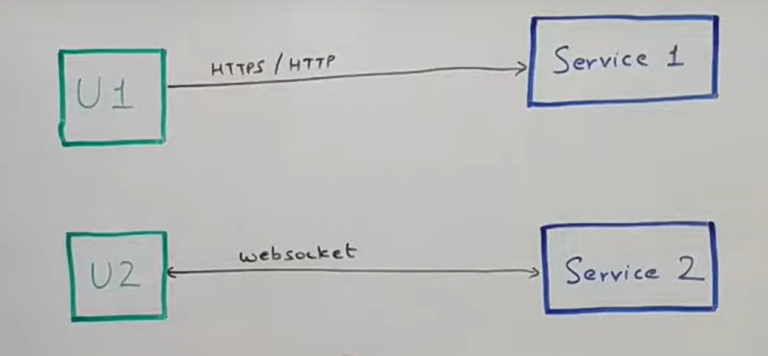 U1
HTTPS / HTTP
Service 1
U2
websocket
Service 2